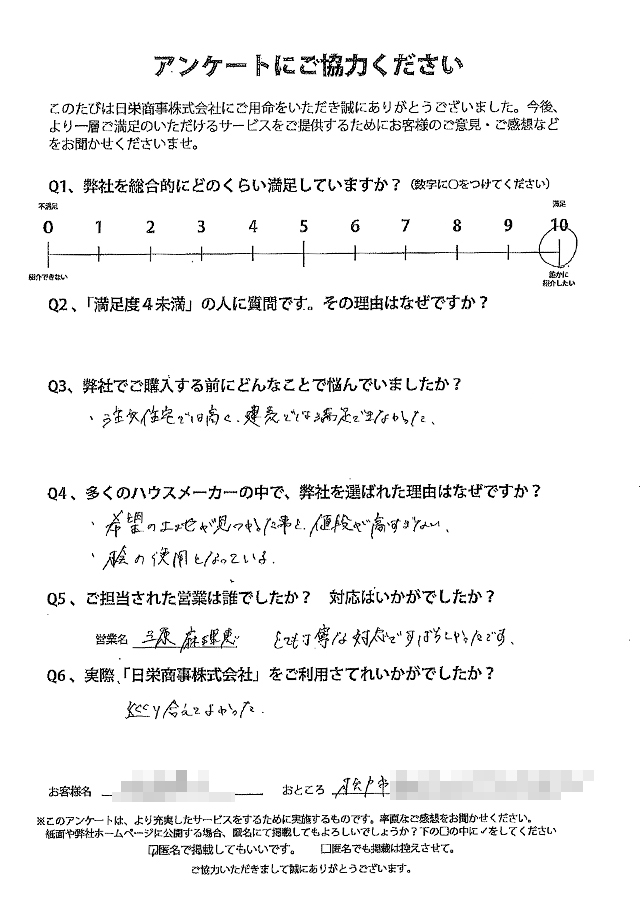 アンケートにご協力ください
このたびは日栄商事株式会社にご用命をいただき誠にありがとうございました。今後、
より一層ご満足のいただけるサービスをご提供するためにお客様のご意見・ご感想など
をお聞かせくださいませ。
Q1、弊社を総合的にどのくらい満足していますか？（数字に○をつけてください）
不満足 満足
0 1 2 3 4 5 6 7 8 9 10
紹介できない 誰かに
紹介したい
Q2、「満足度４未満」の人に質問です。その理由はなぜですか？
Q3、弊社でご購入する前にどんなことで悩んでいましたか？
・注文住宅では高く、建売では満足できなかった、
Q4、多くのハウスメーカーの中で、弊社を選ばれた理由はなぜですか？
・希望の土地が見つかった事と、値段が高すぎない、
・の使用となっている.
Q5、ご担当された営業は誰でしたか？　対応はいかがでしたか？
営業名 三原 麻理恵 とても丁寧な対応ですばらしかったです、
Q6、実際、「日栄商事株式会社」をご利用されていかがでしたか？
めぐり合えてよかった.
お客様名 おところ 松戸市
※このアンケートは、より充実したサービスをするために実施するものです。率直なご感想をお聞かせください。
紙面や弊社ホームページに公開する場合、匿名にて掲載してもよろしいでしょうか？下の□の中に✓をしてください
☑匿名で掲載してもいいです。 □匿名でも掲載は控えさせて。
ご協力いただきまして誠にありがとうございます。